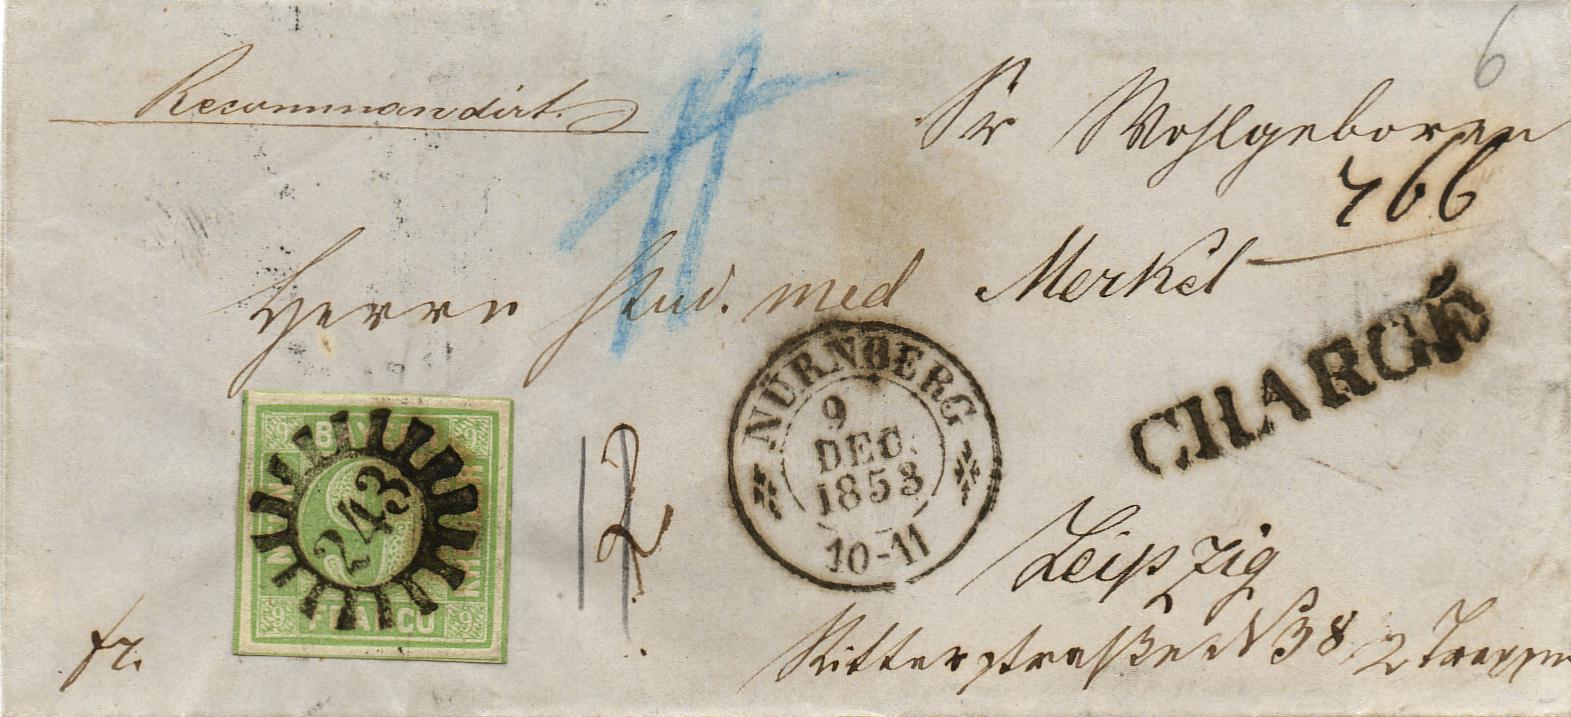 6
Recommandirt.
Sr Wohlgeboren
766
Herrn Stud. med Merkel
CHARGÉ
NÜRNBERG
9
DEC.
1853
10-11
BAYERN
9 9
243
FRANCO
9 9
12
Leipzig
fr.
Ritterstraße N 38 2 Treppen